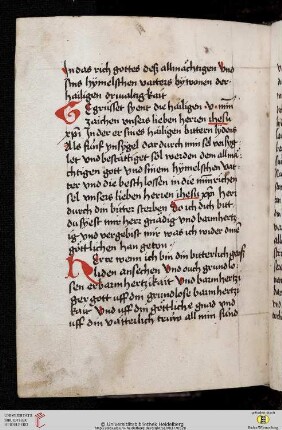 In das rich gottes deß allmächtigen und
sins hymelschen vatters bywonen der
hailigen drivaltigkait
Gegrüsset syent die hailigen v min
zaichen unsers lieben herren ihesu
xpi In der er sines hailigen bittern lydens
Als fünf ynsygel dar durch min sel versygˀ
let und bestättiget sol werden dem allmä
chtigen gott und sinem hymelschen vat
ter und die beschlossen in die minrichen
sel unsers lieben herren ihesu xpi herr
durch din bitter sterben So ich dich bitt
du syest mir herr gnädig und barmhertz
ig und vergebist mir was ich wider dine
göttlichen han geton
Herre wem ich bin din bitterlich
liden ansechen und ouch grundlo
sen erbarmhertzikait und barmhertzi
ger gott uff din grundlose barmhertzi
kait und uff din göttliche gnad und
uff din vätterlich truw all min sünd
Universitätsbibliothek Heidelberg